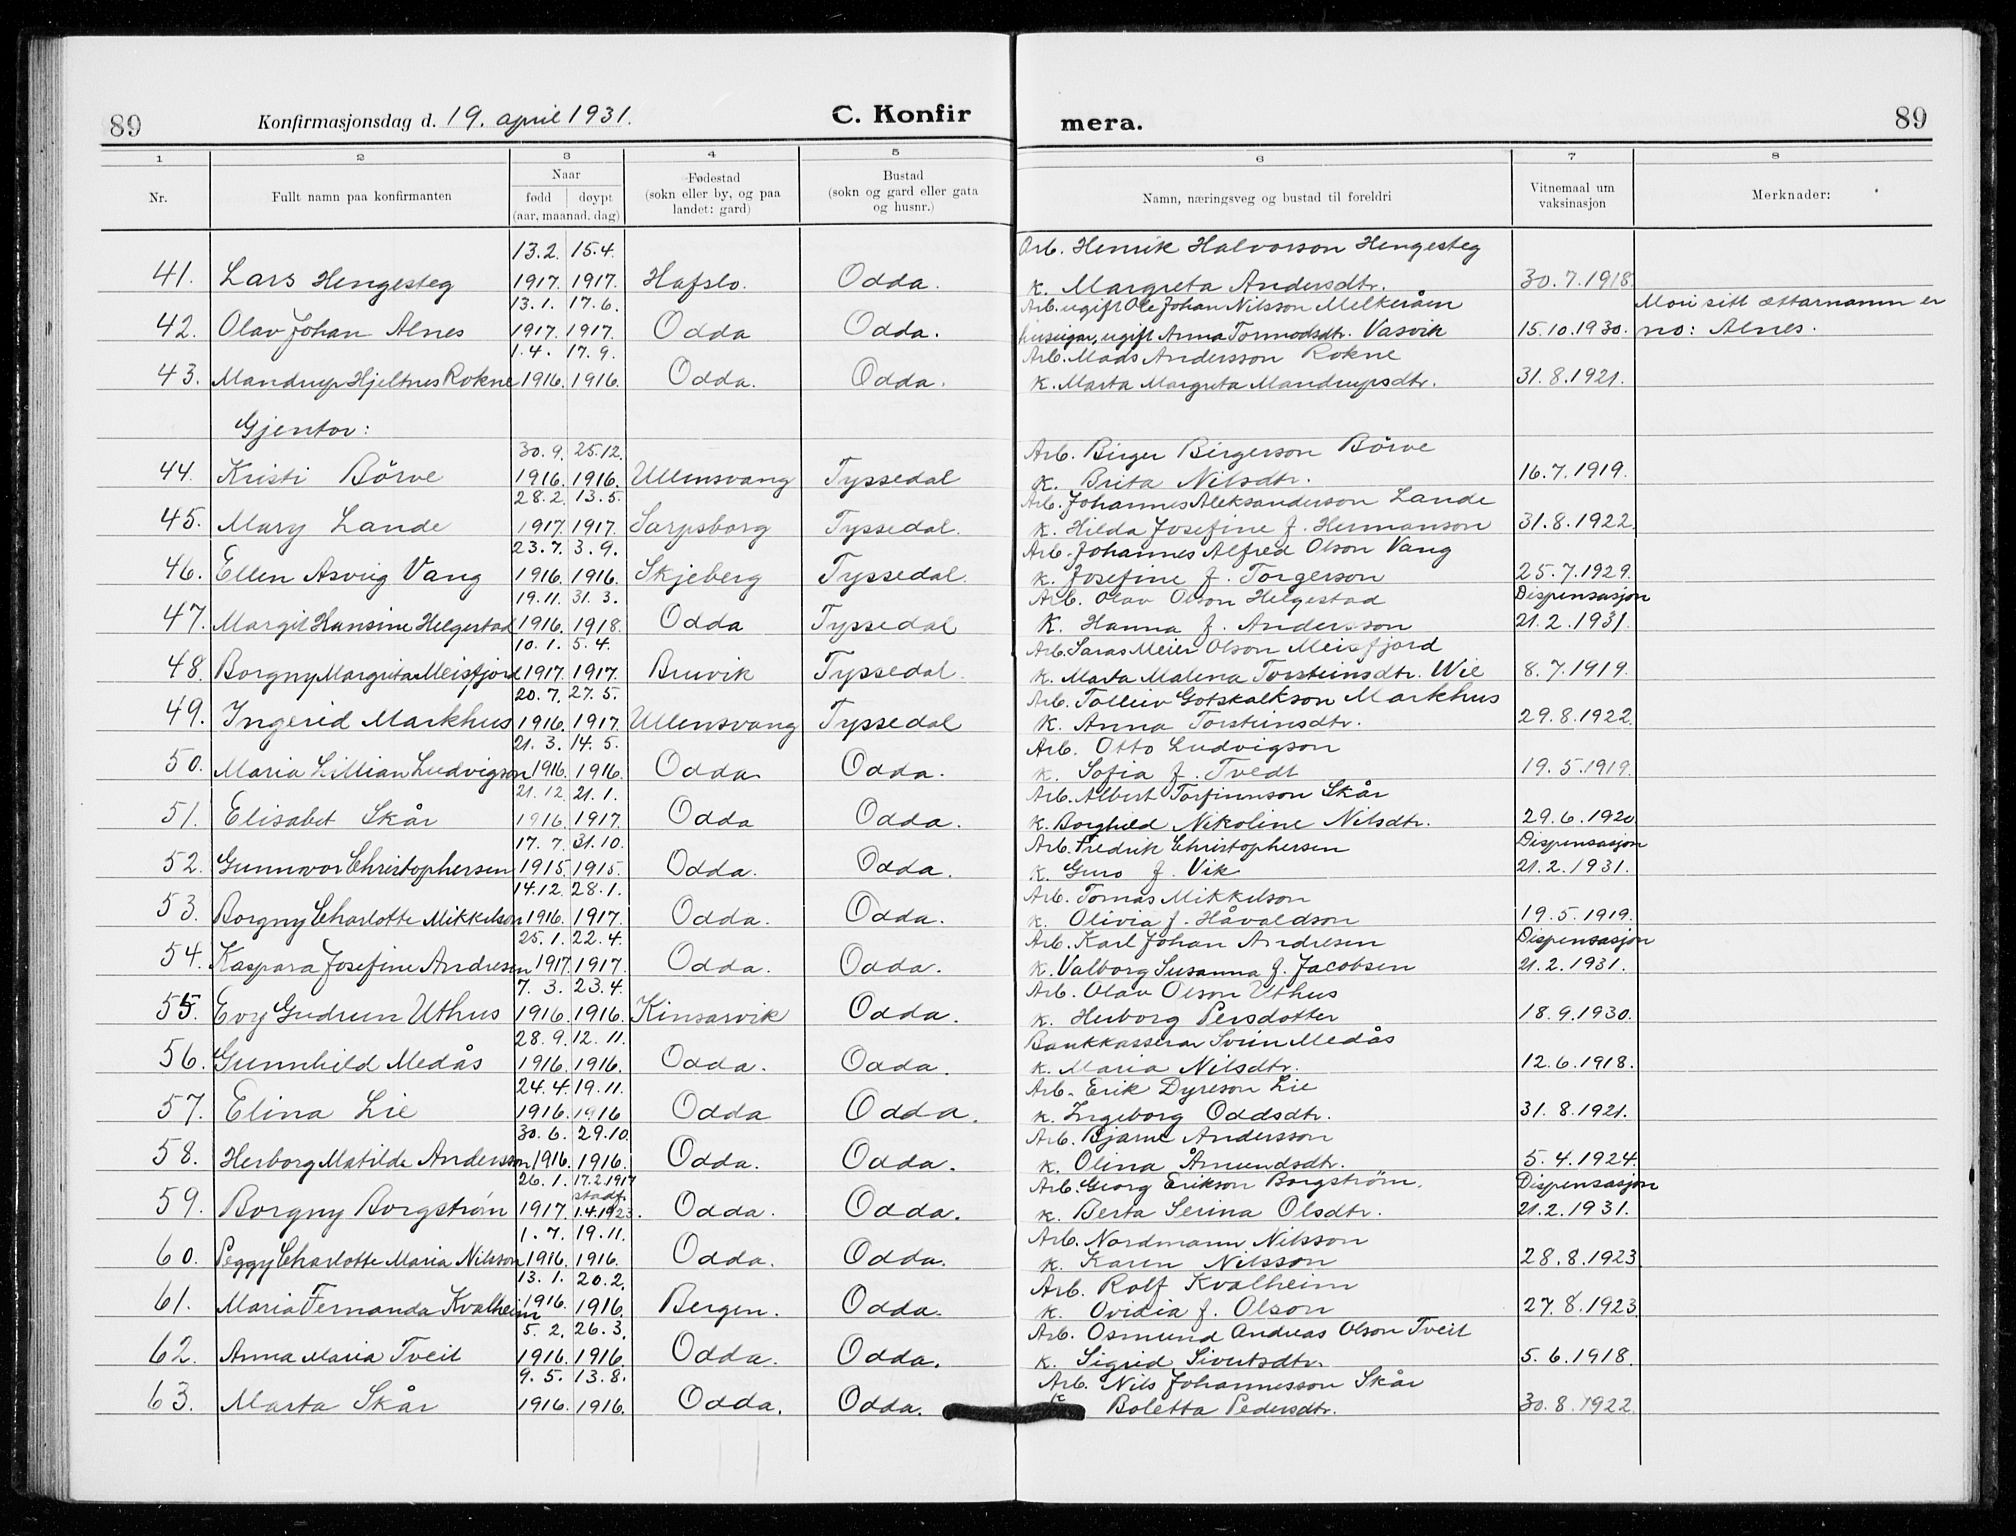 89 Konfirmasjonsdag d. 19. april 1931. C. Konfir mera. 89
1 2 3 4 5 6 7 8
Nr. Fullt namn paa konfirmanten Naar fødd døypt (aar, maanad, dag) Fødestad (sokn eller by, og paa landet: gard) Bustad (sokn og gard eller gata og husnr.) Namn, næringsveg og bustad til foreldri Vitnemaal um vaksinasjon Merknader:
13.2. 15.4. Arb. Henrik Halvorson Hengesteg
41. Lars Hengesteg 1917. 1917. Hafslo. Odda. K. Margreta Andersdtr. 30.7.1918.
13.1. 17.6. Arb. ugift Ole Johan Nilsson Melkeråen Mori sitt ættarnamn er
42. Olav Johan Alnes 1917. 1917. Odda Odda. huseigar, ugift Anna Tormodsdtr. Vasvik 15.10.1930. no: Alnes.
1.4. 17.9. Arb. Mads Andersson Rokne
43. Mandrup Hjeltnes Rokne 1916. 1916. Odda. Odda. K. Marta Margreta Mandrupsdtr. 31.8.1921.
Gjentor:
30.9. 25.12. Arb. Birger Birgerson Börve
44. Kristi Börve 1916. 1916. Ullensvang Tyssedal K. Brita Nilsdtr. 16.7.1919.
28.2. 13.5. Arb. Johannes Aleksanderson Lande
45. Mary Lande 1917. 1917. Sarpsborg Tyssedal. K. Hilda Josefine f. Hermanson 31.8.1922.
23.7. 3.9. Arb. Johannes Alfred Olson Vang
46. Ellen Asvig Vang 1916. 1916. Skjeberg Tyssedal. K. Josefine f. Torgerson 25.7.1929.
19.11. 31.3. Arb. Olav Olson Helgestad Dispensasjon
47. Margit Hansine Helgestad 1916. 1918. Odda Tyssedal K. Hanna f. Andersson 21.2.1931.
10.1. 5.4. Arb. Saras Meier Olson Meisfjord
48. Borgny Margreta Meisfjord 1917. 1917. Bruvik Tyssedal. K. Marta Malena Torsteinsdtr. Wie 8.7.1919.
20.7. 27.5. Arb. Tolleiv Gotskalkson Markhus
49. Ingerid Markhus 1916. 1917. Ullensvang Tyssedal K. Anna Torsteinsdtr. 29.8.1922.
21.3. 14.5. Arb. Otto Ludvigson
50. Maria Lillian Ludvigson 1916. 1916. Odda Odda. K. Sofia f. Tvedt 19.5.1919.
21.12. 21.1. Arb. Albert Torfinnson Skår
51. Elisabet Skår 1916. 1917. Odda Odda. K. Borghild Nikoline Nilsdtr. 29.6.1920
17.7. 31.10. Arb. Fredrik Christophersen Dispensasjon
52. Gunnvor Christophersen 1915. 1915. Odda. Odda. K. Guro f. Vik 21.2.1931.
14.12. 28.1. Arb. Tomas Mikkelson
53. Borgny Charlotte Mikkelson 1916. 1917. Odda. Odda. K. Olivia f. Håvaldson 19.5.1919.
25.1. 22.4. Arb. Karl Johan Andresen Dispensasjon
54. Kaspara Josefine Andresen 1917. 1917. Odda. Odda. K. Valborg Susanna f. Jacobsen 21.2.1931.
7.3. 23.4. Arb. Olav Olson Uthus
55. Evy Gudrun Uthus 1916. 1916. Kinsarvik Odda. K. Herborg Persdotter 18.9.1930.
28.9. 12.11. Bankkasserar Svein Medås
56. Gunnhild Medås 1916. 1916. Odda. Odda. K. Maria Nilsdtr. 12.6.1918.
24.4. 19.11. Arb. Erik Dyreson Lie
57. Elina Lie 1916. 1916 Odda Odda. K. Ingeborg Oddsdtr. 31.8.1921.
30.6. 29.10. Arb. Bjarne Andersson
58. Herborg Matilde Andersson 1916. 1916. Odda. Odda. K. Olina Åmundsdtr. 5.4.1924.
26.1. 17.2.1917 stadf. Arb. Georg Erikson Borgstrøm. Dispensasjon
59. Borgny Borgstrøm 1917. 1.4.1923. Odda. Odda. K. Berta Serina Olsdtr. 21.2.1931.
1.7. 19.11. Arb. Nordmann Nilsson
60. Peggy Charlotte Maria Nilsson 1916. 1916. Odda. Odda. K. Karen Nilsson 28.8.1923
13.1. 20.2. Arb. Rolf Kvalheim
61. Maria Fernanda Kvalheim 1916. 1916. Bergen. Odda. K. Ovidia f. Olson 27.8.1923
5.2. 26.3. Arb. Osmund Andreas Olson Tveit
62. Anna Maria Tveit 1916. 1916. Odda. Odda. K. Sigrid Sivertsdtr. 5.6.1918.
9.5. 13.8. Arb. Nils Johannesson Skår
63. Marta Skår 1916. 1916. Odda. Odda. K Boletta Pedersdtr. 30.8.1922.